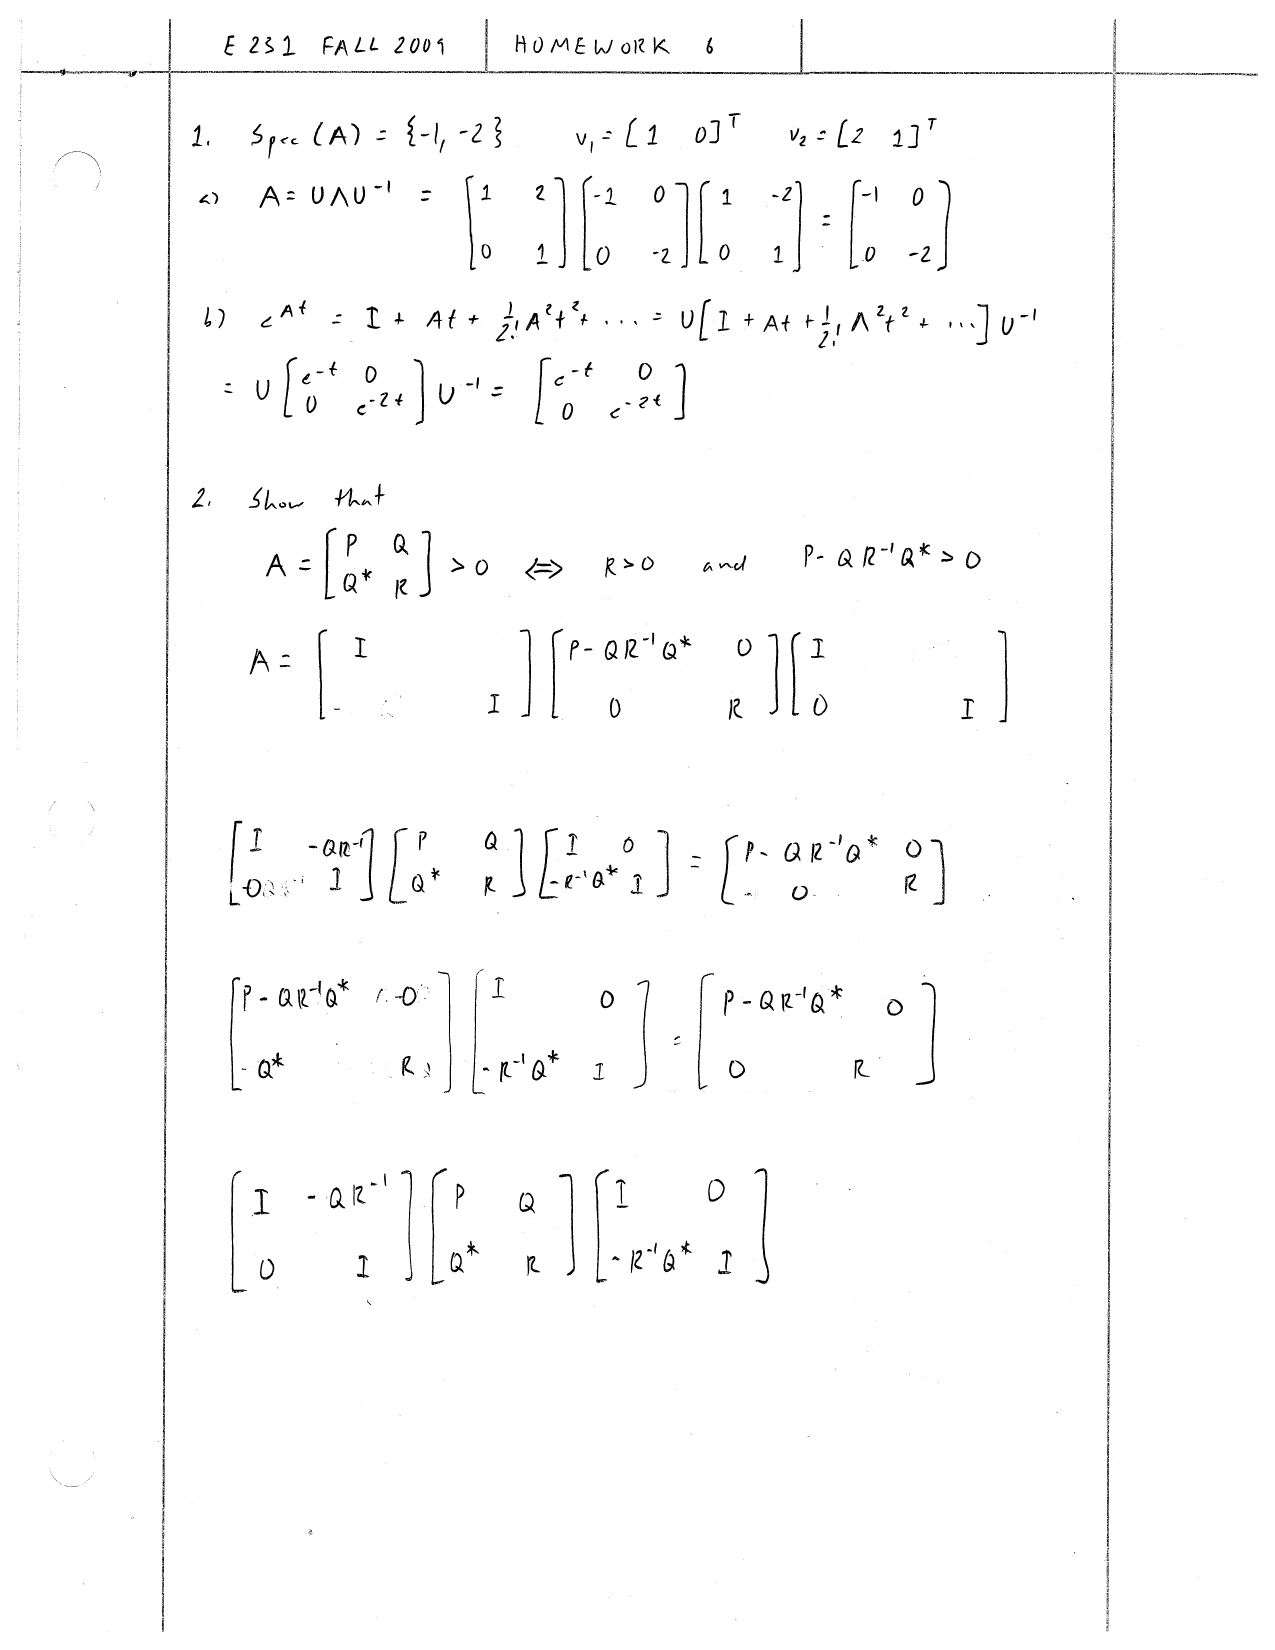 E 231 FALL 2009 HOMEWORK 6
1. Spec (A) = {-1, -2} v₁ = [1 0]ᵀ v₂ = [2 1]ᵀ
a) A = UΛU⁻¹ = [1 2; 0 1] [-1 0; 0 -2] [1 -2; 0 1] = [-1 0; 0 -2]
b) e^{At} = I + At + 1/2! A²t² + ... = U[I + Λt + 1/2! Λ²t² + ...] U⁻¹
= U [e^{-t} 0; 0 e^{-2t}] U⁻¹ = [e^{-t} 0; 0 e^{-2t}]
2. Show that
A = [P Q; Q* R] > 0 ⇔ R > 0 and P - QR⁻¹Q* > 0
A = [I ; I] [P - QR⁻¹Q* 0; 0 R] [I ; 0 I]
[I -QR⁻¹; 0 I] [P Q; Q* R] [I 0; -R⁻¹Q* I] = [P - QR⁻¹Q* 0; 0 R]
[P - QR⁻¹Q* 0; Q* R] [I 0; -R⁻¹Q* I] = [P - QR⁻¹Q* 0; 0 R]
[I -QR⁻¹; 0 I] [P Q; Q* R] [I 0; -R⁻¹Q* I]